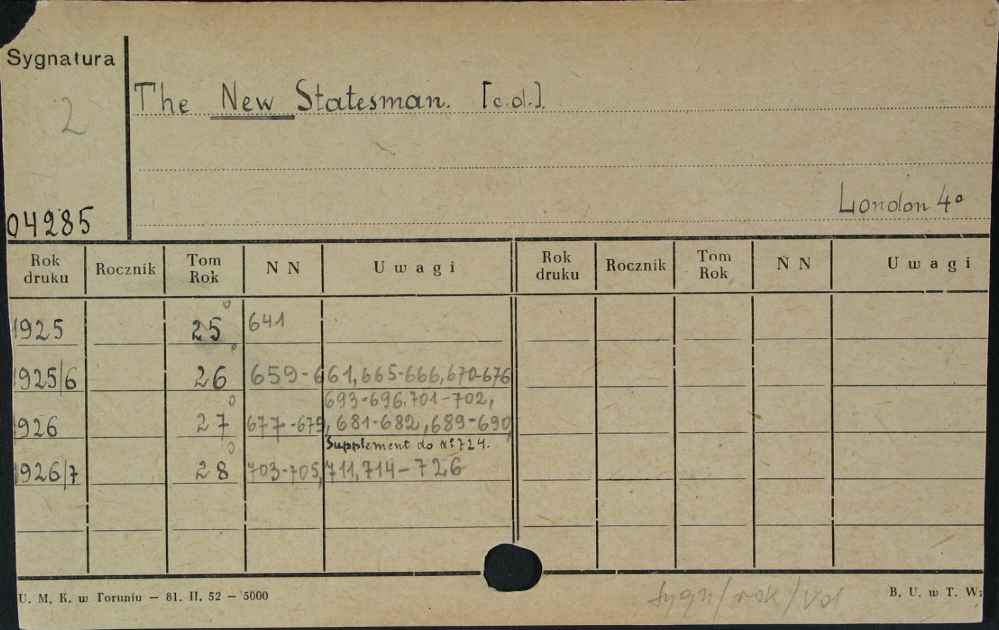 Sygnatura
2
The New Statesman. [c.d.].
London 4°
04285
Rok druku Rocznik Tom Rok N N Uwagi Rok druku Rocznik Tom Rok N N Uwagi
1925 25 641
1925/6 26 659-661, 665-666, 670-676
693-696, 701-702,
1926 27 677-679, 681-682, 689-690
Supplement do nr 724.
1926/7 28 703-705, 711, 714-726
U. M. K. w Toruniu — 81. II. 52 — 5000
sygn/rok/vol
B. U. w T. W: